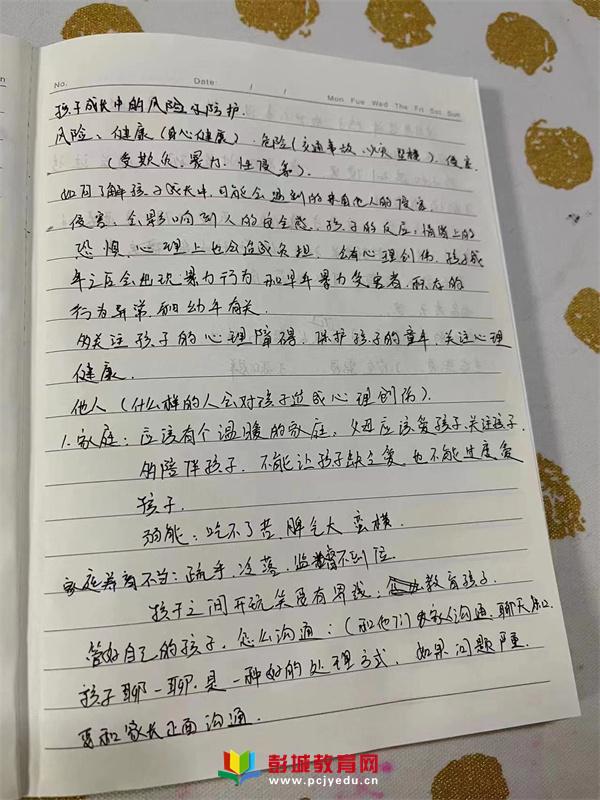 No.
Date: / /
Mon Tue Wed Thu Fri Sat Sun
孩子成长中的风险与防护
风险、健康（身心健康）、危险（交通事故、火灾、坠楼）、侵害
（受欺负、暴力、性侵害）.
如何了解孩子成长中,可能会遇到的来自他人的侵害.
侵害、会影响到人的安全感,孩子的反应,情绪上的
恐惧、心理上也会造成负担. 会有心理创伤,孩子成
年之后会出现暴力行为 和早年暴力受害者,所存的
行为异常,和幼年有关.
多关注孩子的心理障碍、保护孩子的童年、关注心理
健康.
他人（什么样的人会对孩子造成心理创伤）.
1.家庭：应该有个温暖的家庭,父母应该爱孩子,关注孩子.
多陪伴孩子、不能让孩子缺乏爱 也不能过度爱
孩子.
弱能：吃不了苦、脾气大 蛮横.
家庭养育不当：疏乎、冷落、监督不到位
孩子之间开玩笑是有界线； 教育孩子.
管好自己的孩子、怎么沟通：（和他们家人沟通、聊天
孩子聊一聊.是一种好的处理方式、如果问题严重.
要和家长正面沟通.
彭城教育网
www.pcjyedu.cn